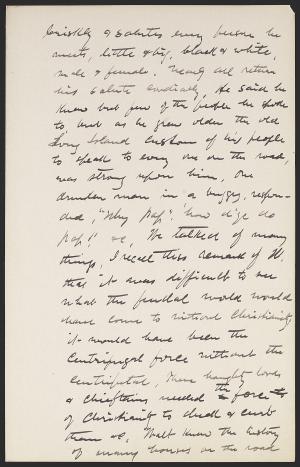 briskly & salutes every person he
meets, little & big, black & white,
male & female. Nearly all return
his salute cordially. He said he
knew but few of the people he spoke
to, but as he grew older the old
Long Island custom of his people
to speak to every one on the road,
was strong upon him. One
drunken man in a buggy, respon-
ded, "Why pap, how d'ye do
pap!" &c. We talked of many
things. I recall this remark of W.
that it was difficult to see
what the feudal world would
have come to without Christianity,
it would have been the
centrifugal force without the
centripetal. Those haughty lords
& chieftains needed the force
of Christianity to check & curb
them &c. Walt knew the history
of many houses on the road